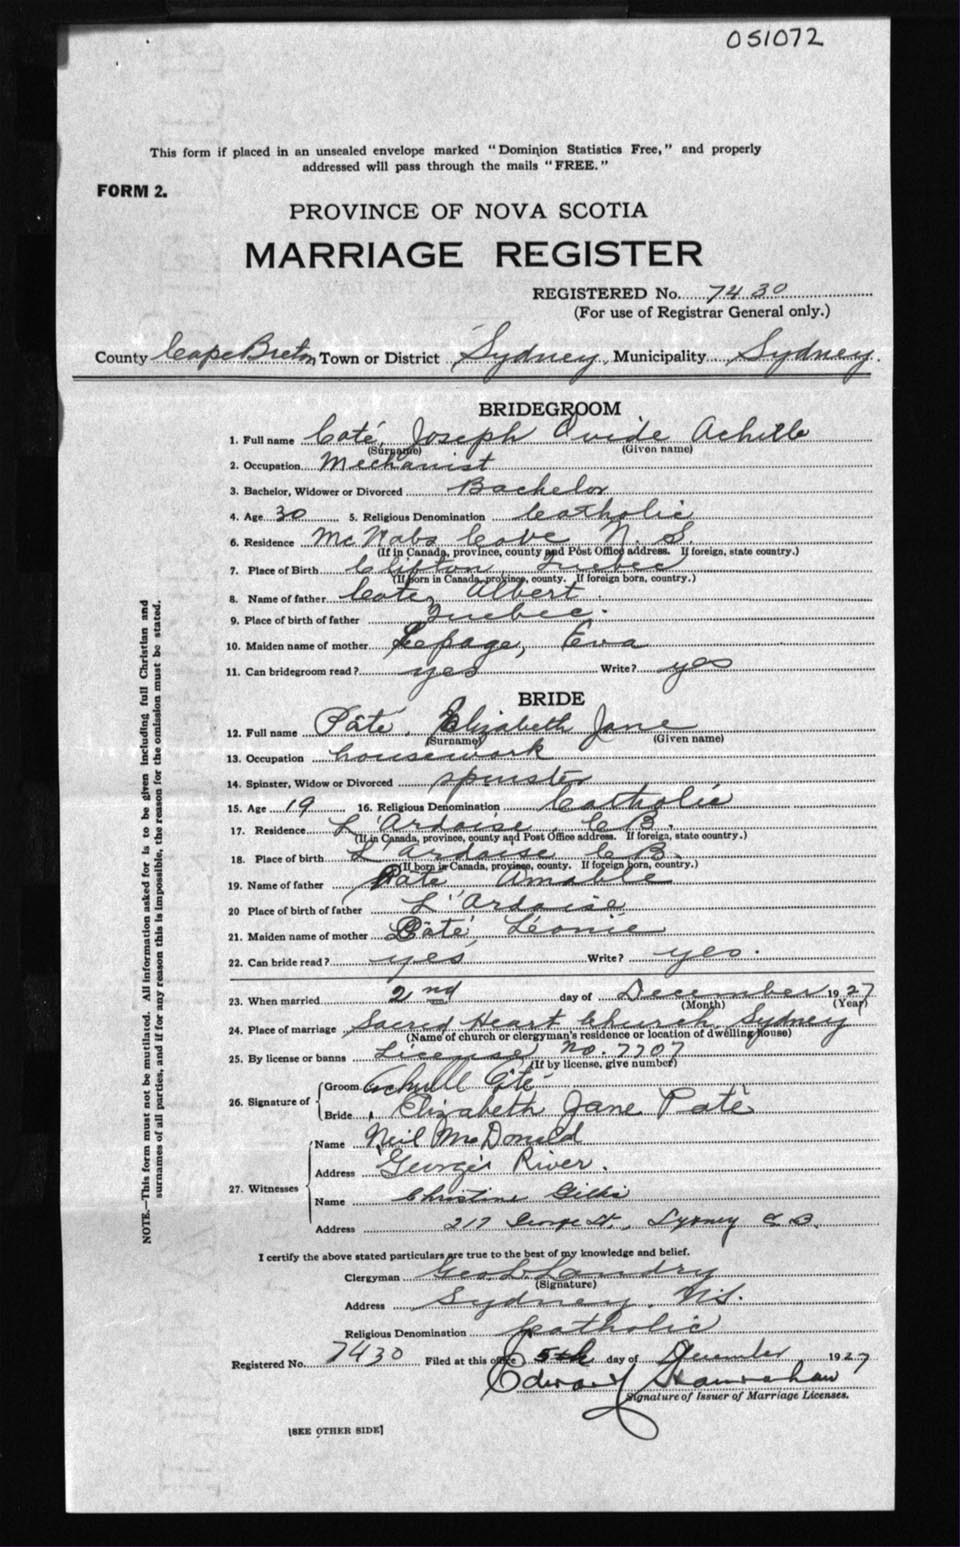 051072
This form if placed in an unsealed envelope marked "Dominion Statistics Free," and properly
addressed will pass through the mails "FREE."
FORM 2.
PROVINCE OF NOVA SCOTIA
MARRIAGE REGISTER
REGISTERED No. 7430
(For use of Registrar General only.)
County Cape Breton Town or District Sydney, Municipality Sydney.
BRIDEGROOM
1. Full name Coté, Joseph Ovide Achille
(Surname) (Given name)
2. Occupation Mechanist
3. Bachelor, Widower or Divorced Bachelor
4. Age 30 5. Religious Denomination Catholic
6. Residence McNabs Cove N. S.
(If in Canada, province, county and Post Office address. If foreign, state country.)
7. Place of Birth Clifton Quebec
(If born in Canada, province, county. If foreign born, country.)
8. Name of father Cote, Albert.
9. Place of birth of father Quebec.
10. Maiden name of mother Lepage, Eva
11. Can bridegroom read? yes Write? yes
BRIDE
12. Full name Pâté, Elizabeth Jane
(Surname) (Given name)
13. Occupation housework
14. Spinster, Widow or Divorced spinster
15. Age 19 16. Religious Denomination Catholic
17. Residence L'Ardoise, C.B.
(If in Canada, province, county and Post Office address. If foreign, state country.)
18. Place of birth L'Ardoise C.B.
(If born in Canada, province, county. If foreign born, country.)
19. Name of father Pate Amable
20 Place of birth of father L'Ardoise
21. Maiden name of mother Pâté, Léonie
22. Can bride read? yes Write? yes.
23. When married 2nd day of December 1927
(Month) (Year)
24. Place of marriage Sacred Heart Church, Sydney
(Name of church or clergyman's residence or location of dwelling house)
25. By license or banns License, No. 7707
(If by license, give number)
26. Signature of Groom Achille Côté
Bride Elizabeth Jane Paté
27. Witnesses Name Neil McDonald
Address Georges River.
Name Christine Gillis
Address 217 George St., Sydney C.B.
I certify the above stated particulars are true to the best of my knowledge and belief.
Clergyman Geo L. Landry
(Signature)
Address Sydney, N.S.
Religious Denomination Catholic
Registered No. 7430 Filed at this office 5th day of December 1927
Edward Hanrahan
Signature of Issuer of Marriage Licenses.
[SEE OTHER SIDE]
NOTE.—This form must not be mutilated. All information asked for is to be given including full Christian and
surnames of all parties, and if for any reason this is impossible, the reason for the omission must be stated.